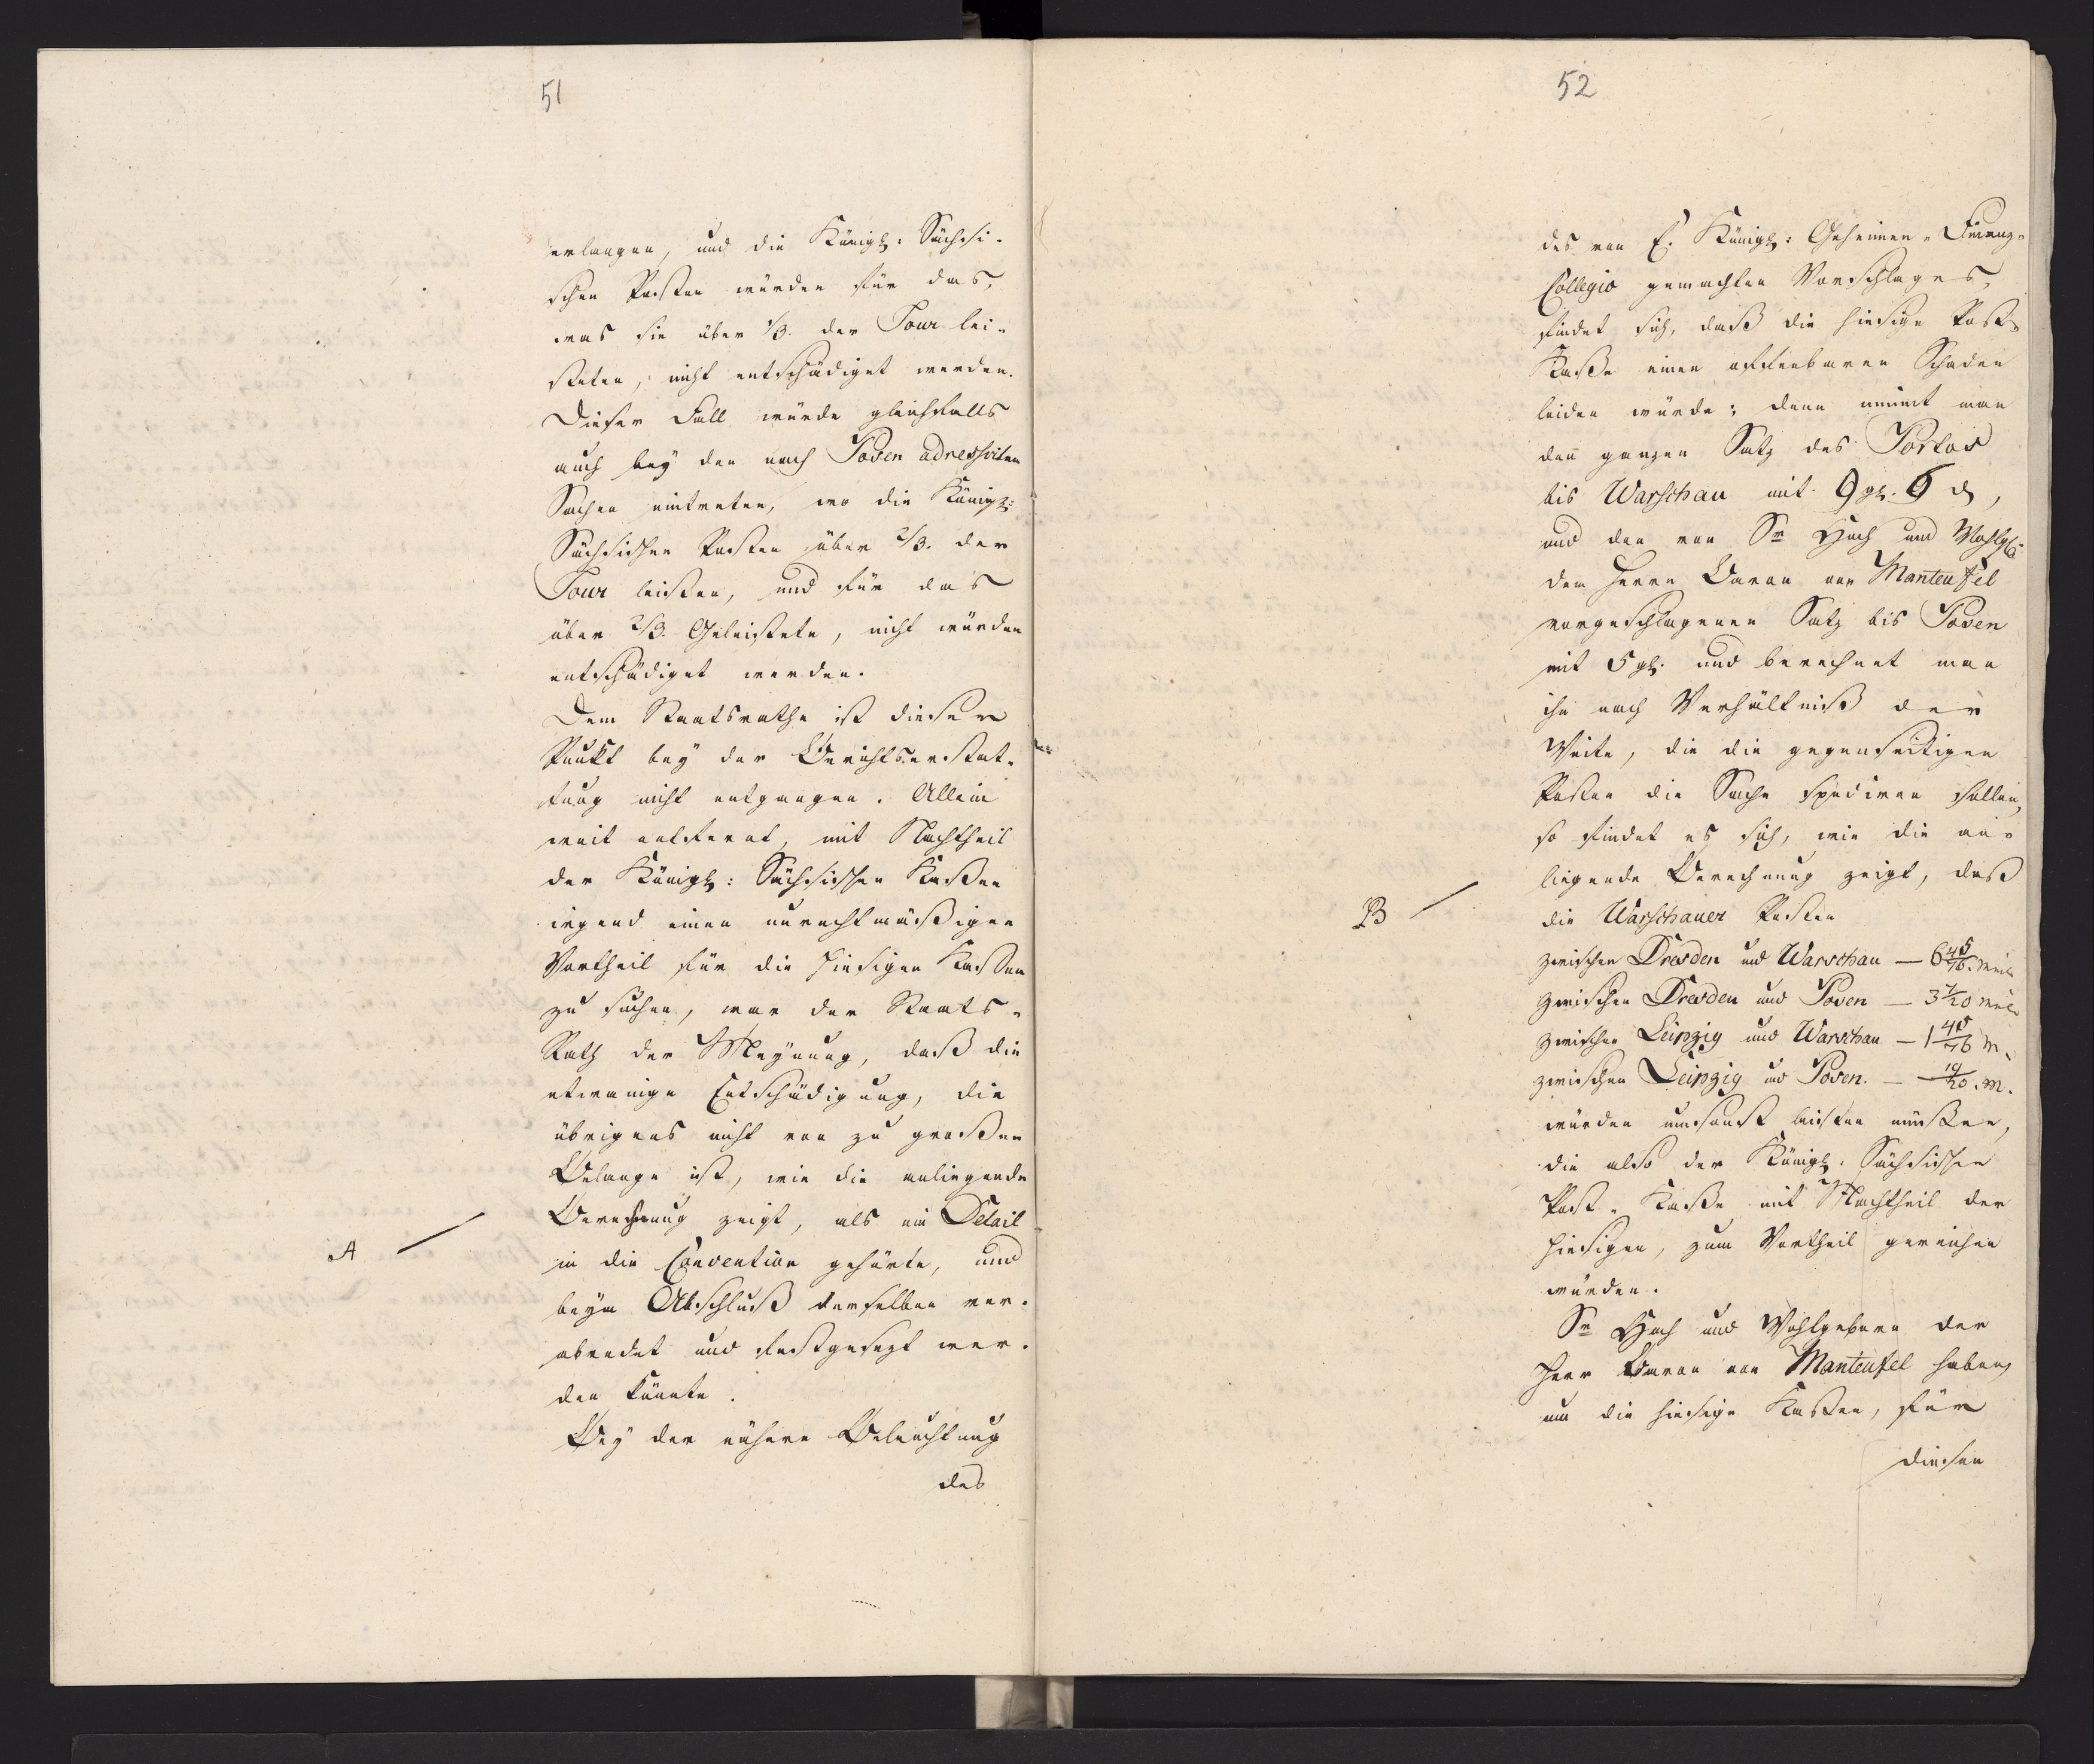 51
erlangen, und die Königl: Sächsi-
schen Posten würden für das,
was sie über 1/3. der Tour lei-
steten, nicht entschädiget werden.
Dieser Fall würde gleichfalls
auch bey den nach Posen adressirten
Sachen eintreten, wo die Königl:
Sächsischen Posten über 2/3. der
Tour leisten, und für das
über 2/3. Geleistete, nicht würden
entschädiget werden.
Dem Staatsrathe ist dieser
Punkt bey der Berichtserstat-
tung nicht entgangen. Allein
weit entfernt, mit Nachtheil
der Königl: Sächsischen Kaßen
irgend einen unrechtmäßigen
Vortheil für die hiesigen Kassen
zu suchen, war der Staats-
Rath der Meynung, daß die
etwanige Entschädigung, die
übrigens nicht von zu großen
Belange ist, wie die anliegende
Berechnung zeigt, als ein Detail
A
in die Convention gehörte, und
beym Abschluß derselben ver-
abredet und festgesezt wer-
den könnte.
Bey der nähern Beleuchtung
des
52
des von E. Königl: Geheimen-Finanz-
Collegio gemachten Vorschlages,
findet sich, daß die hiesige Post-
Kaße einen offenbaren Schaden
leiden würde; denn nimmt man
den ganzen Satz des Portos
bis Warschau mit 9 gl. 6 d,
und den von Sr Hoch und Wohlgb:
dem Herrn Baron von Manteufel
vorgeschlagenen Satz bis Posen
mit 5 gl. und berechnet man
ihn nach Verhältniß der
Weite, die die gegenseitigen
Posten die Sache spediren sollen,
so findet es sich, wie die an-
liegende Berechnung zeigt, daß
B
die Warschauer Posten
zwischen Dresden und Warschau — 6 45/76. Meile
zwischen Dresden und Posen — 3 7/20 Meile
zwischen Leipzig und Warschau — 1 45/76 M.
zwischen Leipzig und Posen. — 19/20. M.
würden umsonst leisten müßen,
die also der Königl: Sächsischen
Post-Kaße mit Nachtheil der
hiesigen, zum Vortheil gereichen
würden.
Sr Hoch und Wohlgeborn der
Herr Baron von Manteufel haben,
um die hiesige Kaßen, für
diesen